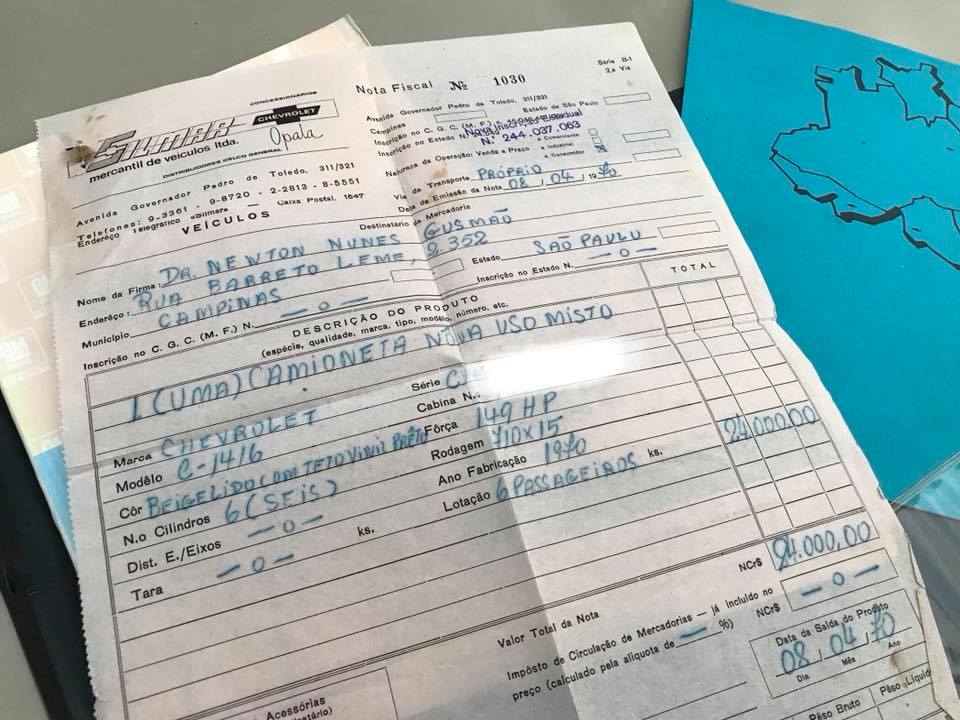 Nota Fiscal Nº 1030
Série B-1
2.a Via
CONCESSIONÁRIOS
CHEVROLET
SILMAR
Opala
mercantil de veículos ltda.
DISTRIBUIDORES DELCO GENERAL
Avenida Governador Pedro de Toledo, 311/321
Telefones: 9-3361 - 9-8720 - 2-2813 - 8-5551
Endereço Telegráfico «Silmar» — Caixa Postal, 1647
VEÍCULOS
Avenida Governador Pedro de Toledo, 311/321
Campinas Estado de São Paulo
Inscrição no C. G. C. (M. F.)
Inscrição no Estado Nova Inscrição Estadual
N.º 244.037.063
Natureza da Operação: Venda a Prazo a Comerciante
a Industrial
a Consumidor
Via de Transporte PRÓPRIO
Data da Emissão da Nota 08, 04, 1970
Destinatário da Mercadoria
Nome da Firma: DR. NEWTON NUNES GUSMÃO
Endereço: RUA BARRETO LEME, 2352
Município CAMPINAS Estado SÃO PAULO
Inscrição no C. G. C. (M. F.) N. — o — Inscrição no Estado N. — o —
DESCRIÇÃO DO PRODUTO
(espécie, qualidade, marca, tipo, modêlo, número, etc.
TOTAL
1 (UMA) CAMIONETA NOVA USO MISTO
Marca CHEVROLET Série C
Modêlo C-1416 Cabina N.
Côr BEIGE LIDO COM TETO VINIL PRÊTO Fôrça 149 HP
N.o Cilindros 6 (SEIS) Rodagem 710X15 24.000,00
Dist. E./Eixos — o — Ano Fabricação 1970
Tara — o — ks. Lotação 6 PASSAGEIROS ks.
Valor Total da Nota NCr$ 24.000,00
Impôsto de Circulação de Mercadorias — já incluído no
preço (calculado pela alíquota de — %) NCr$ — o —
Data da Saída do Produto
08, 04, 70
Dia Mês Ano
Acessórios
Pêso Bruto Pêso Líquido